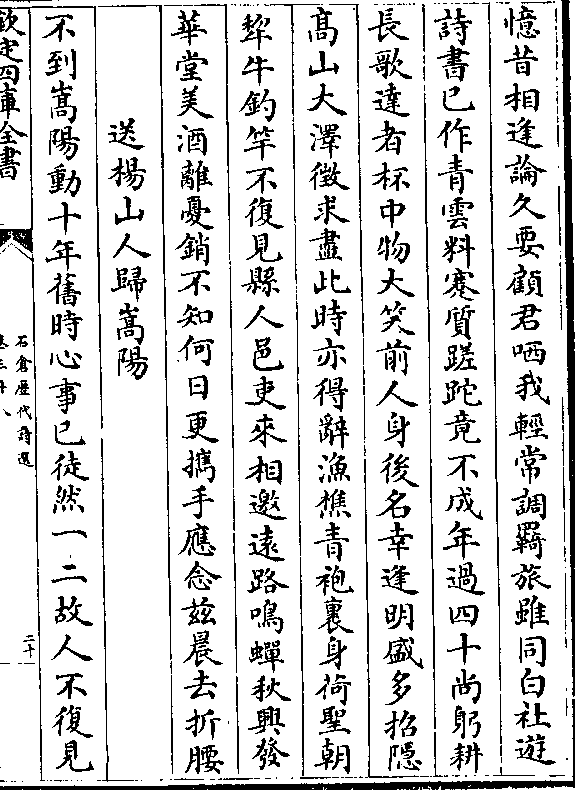 憶昔相逢論久要顧君哂我輕常調羇旅雖同白社遊
詩書已作青雲料蹇質蹉跎竟不成年過四十尚躬耕
長歌達者杯中物大笑前人身後名幸逢明盛多招隠
髙山大澤徴求盡此時亦得辭漁樵青袍裹身荷聖朝
犂牛釣竿不復見縣人邑吏來相邀遠路鳴蟬秋興發
華堂美酒離憂銷不知何日更攜手應念茲晨去折腰
送楊山人歸嵩陽
不到嵩陽動十年舊時心事已徒然一二故人不復見
欽定四庫全書
石倉歷代詩選
卷三十八
二十